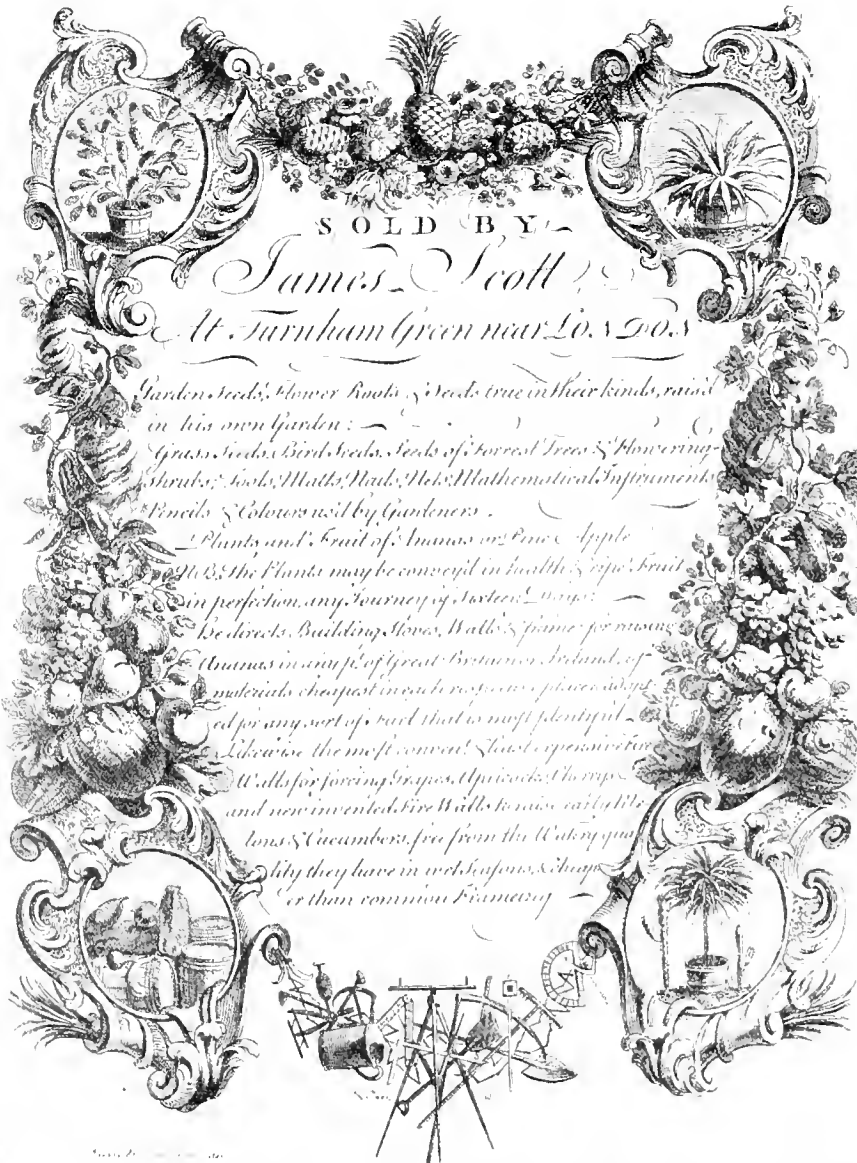 SOLD BY
James Scott
At Turnham Green near LONDON
Garden Seeds, Flower Roots & Seeds true in their kinds, rais'd
in his own Garden:
Grass Seeds, Bird Seeds, Seeds of Forrest Trees & Flowering
Shrubs; Tools, Matts, Nails, Nets, Mathematical Instruments
Pencils & Colours us'd by Gardeners.
Plants and Fruit of Ananas or Pine Apple
NB; the Plants may be convey'd in health & ripe Fruit
in perfection any Journey of Sixteen Days:
He directs Building Stoves, Walls & frames for raising
Ananas in any pt. of Great Britain or Ireland, of
materials cheapest in each place adapt
ed for any sort of fuel that is most plentiful
Likewise the most conven.t & least expensive Fire
Walls for forcing Grapes, Apricocks, Cherrys &
and new invented Fire Walls to raise early Me
lons & Cucumbers, free from the Watery qua
lity they have in wet Seasons, & cheap
er than common Frameing